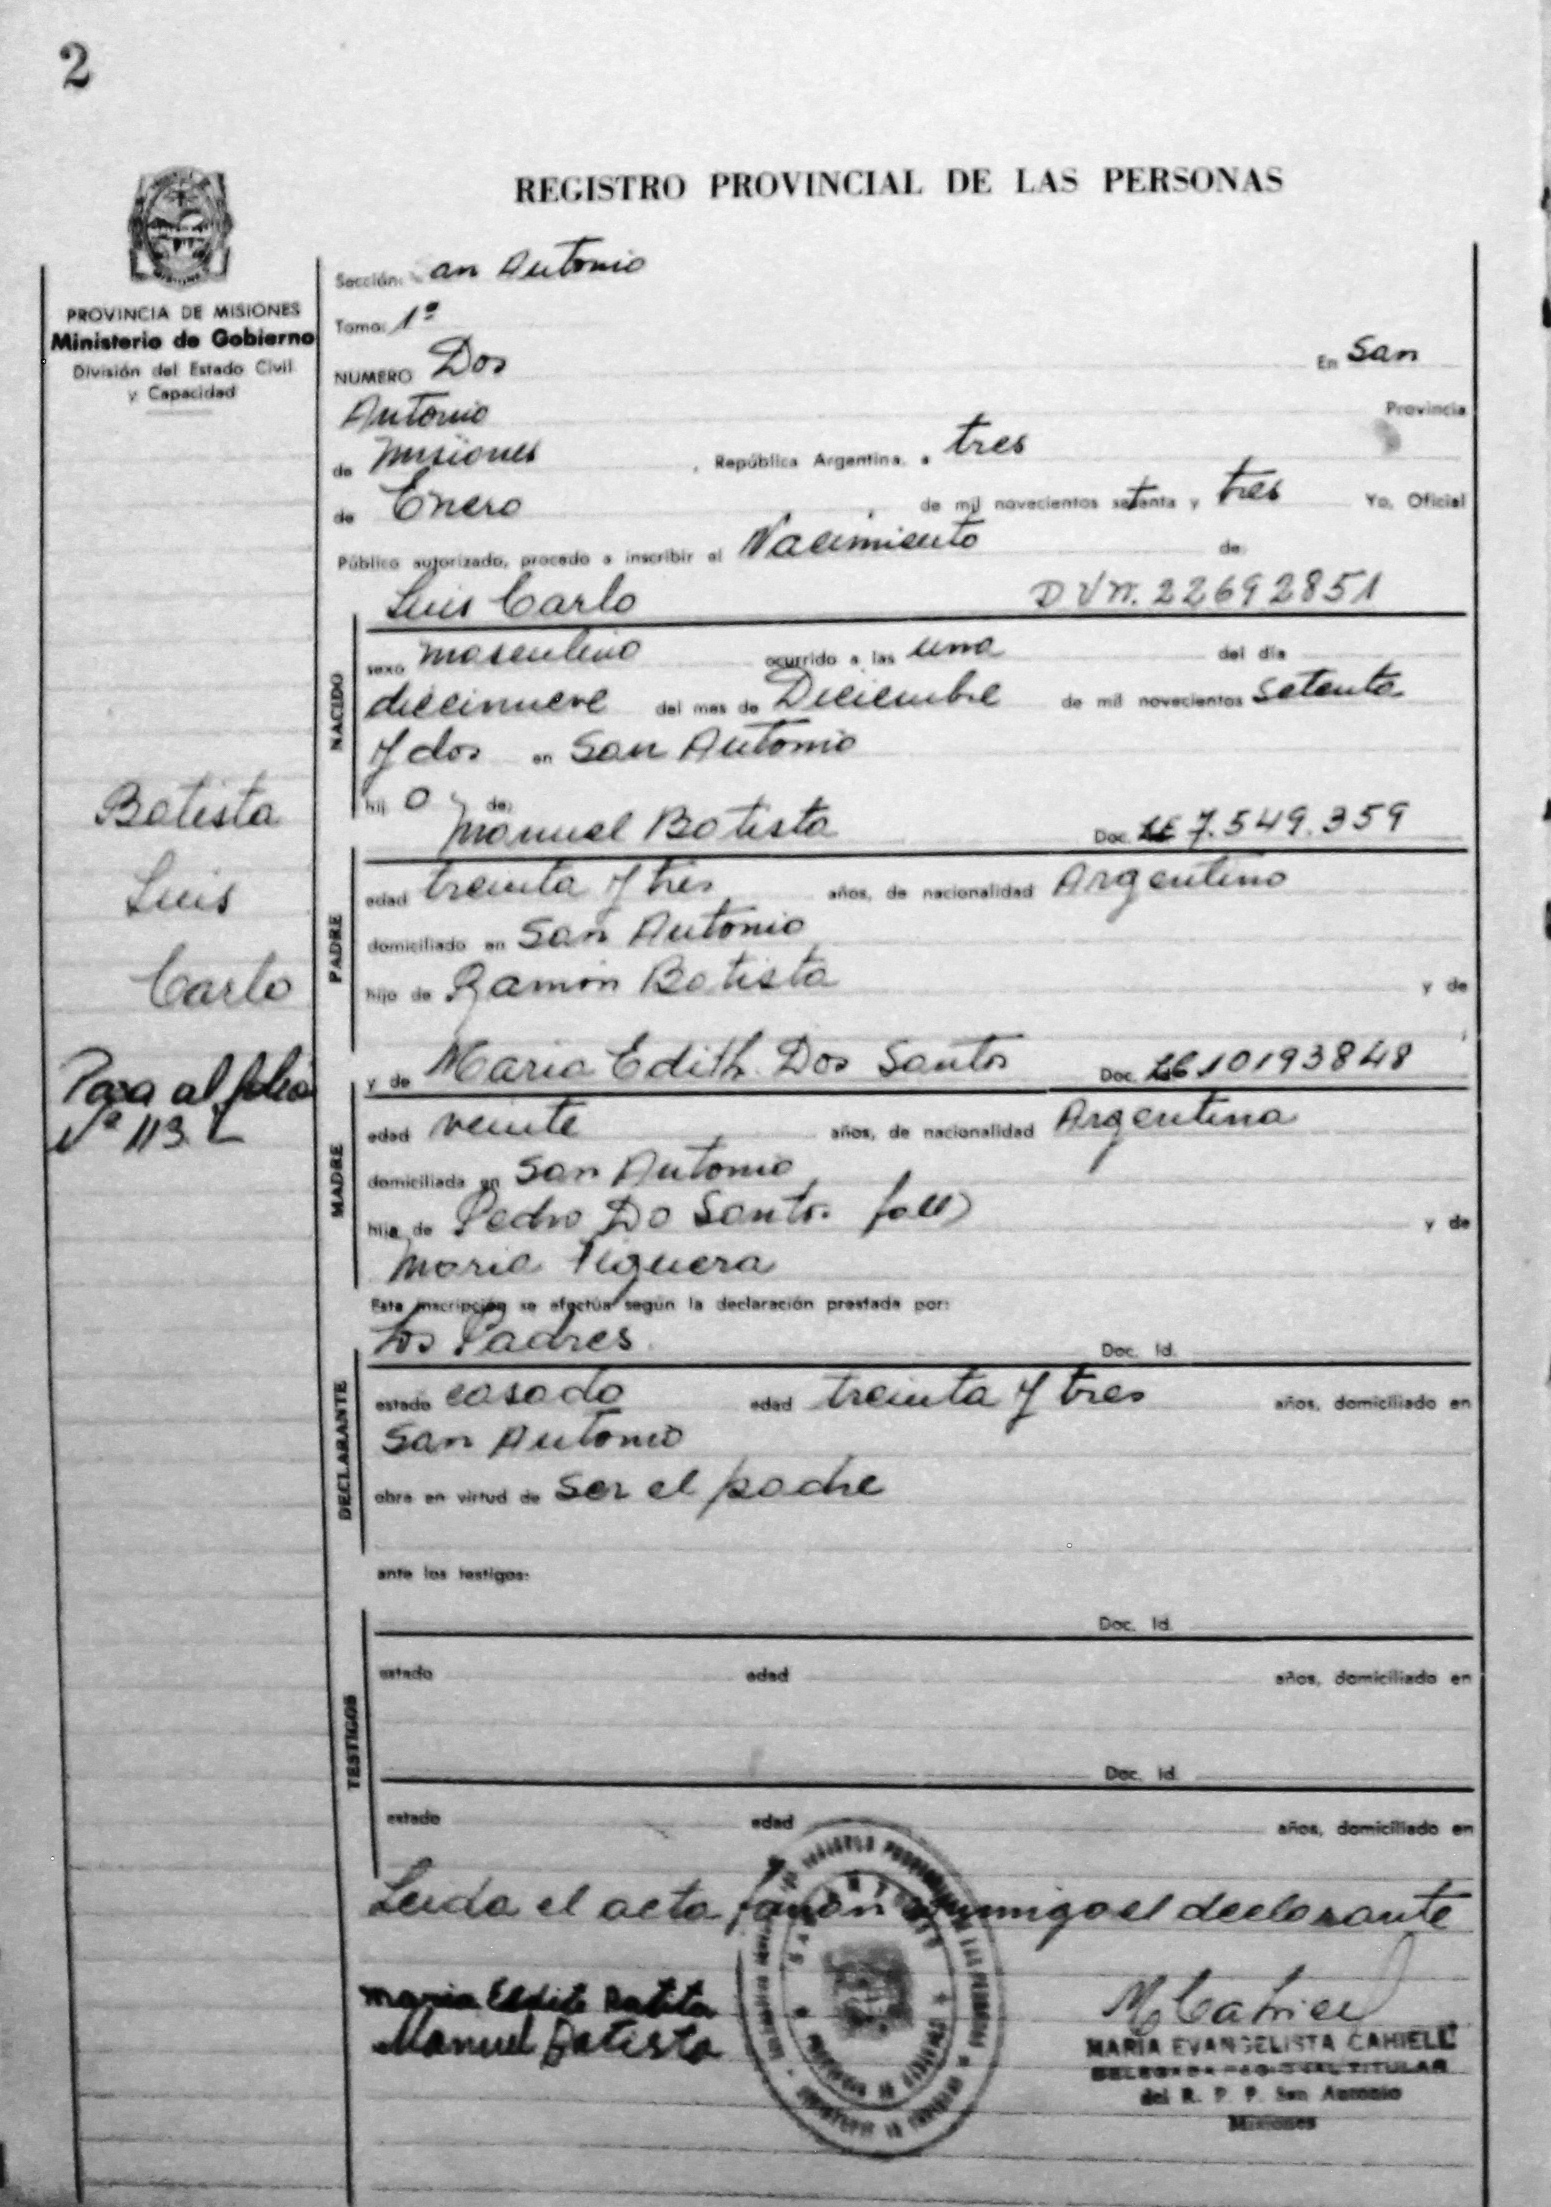 2
REGISTRO PROVINCIAL DE LAS PERSONAS
PROVINCIA DE MISIONES
Ministerio de Gobierno
División del Estado Civil
y Capacidad
Sección: San Antonio
Tomo: 1º
NUMERO Dos En San
Antonio Provincia
de Misiones, República Argentina, a tres
de Enero de mil novecientos setenta y tres Yo, Oficial
Público autorizado, procedo a inscribir el Nacimiento de:
Luis Carlo D.N.I. 22692851
NACIDO
sexo masculino ocurrido a las una del día
diecinueve del mes de Diciembre de mil novecientos setenta
y dos en San Antonio
hij o de:
Manuel Batista Doc. LE 7.549.359
Batista
Luis
Carlo
Pasa al folio
Nº 113 L
PADRE
edad treinta y tres años, de nacionalidad Argentino
domiciliado en San Antonio
hijo de Ramón Batista y de
y de Maria Edith Dos Santos Doc. 10193848
MADRE
edad veinte años, de nacionalidad Argentina
domiciliada en San Antonio
hija de Pedro Do Santos y de
Maria
Esta inscripción se efectúa según la declaración prestada por:
Los Padres Doc. Id.
DECLARANTE
estado casado edad treinta y tres años, domiciliado en
San Antonio
obra en virtud de ser el padre
ante los testigos:
Doc. Id.
TESTIGOS
estado edad años, domiciliado en
Doc. Id.
estado edad años, domiciliado en
Leida el acta firman conmigo el declarante
Manuel Batista
MARIA EVANGELISTA CAHIELL
DELEGADA REGIONAL TITULAR
del R. P. P. San Antonio
Misiones